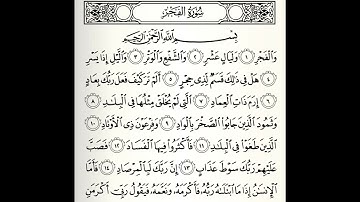 سُورَةُ الفَجْرِ
بِسْمِ اللَّهِ الرَّحْمَٰنِ الرَّحِيمِ
وَالْفَجْرِ ١ وَلَيَالٍ عَشْرٍ ٢ وَالشَّفْعِ وَالْوَتْرِ ٣ وَاللَّيْلِ إِذَا يَسْرِ
٤ هَلْ فِي ذَٰلِكَ قَسَمٌ لِذِي حِجْرٍ ٥ أَلَمْ تَرَ كَيْفَ فَعَلَ رَبُّكَ بِعَادٍ
٦ إِرَمَ ذَاتِ الْعِمَادِ ٧ الَّتِي لَمْ يُخْلَقْ مِثْلُهَا فِي الْبِلَادِ ٨
وَثَمُودَ الَّذِينَ جَابُوا الصَّخْرَ بِالْوَادِ ٩ وَفِرْعَوْنَ ذِي الْأَوْتَادِ ١٠
الَّذِينَ طَغَوْا فِي الْبِلَادِ ١١ فَأَكْثَرُوا فِيهَا الْفَسَادَ ١٢ فَصَبَّ
عَلَيْهِمْ رَبُّكَ سَوْطَ عَذَابٍ ١٣ إِنَّ رَبَّكَ لَبِالْمِرْصَادِ ١٤ فَأَمَّا
الْإِنْسَانُ إِذَا مَا ابْتَلَاهُ رَبُّهُ فَأَكْرَمَهُ وَنَعَّمَهُ فَيَقُولُ رَبِّي أَكْرَمَنِ